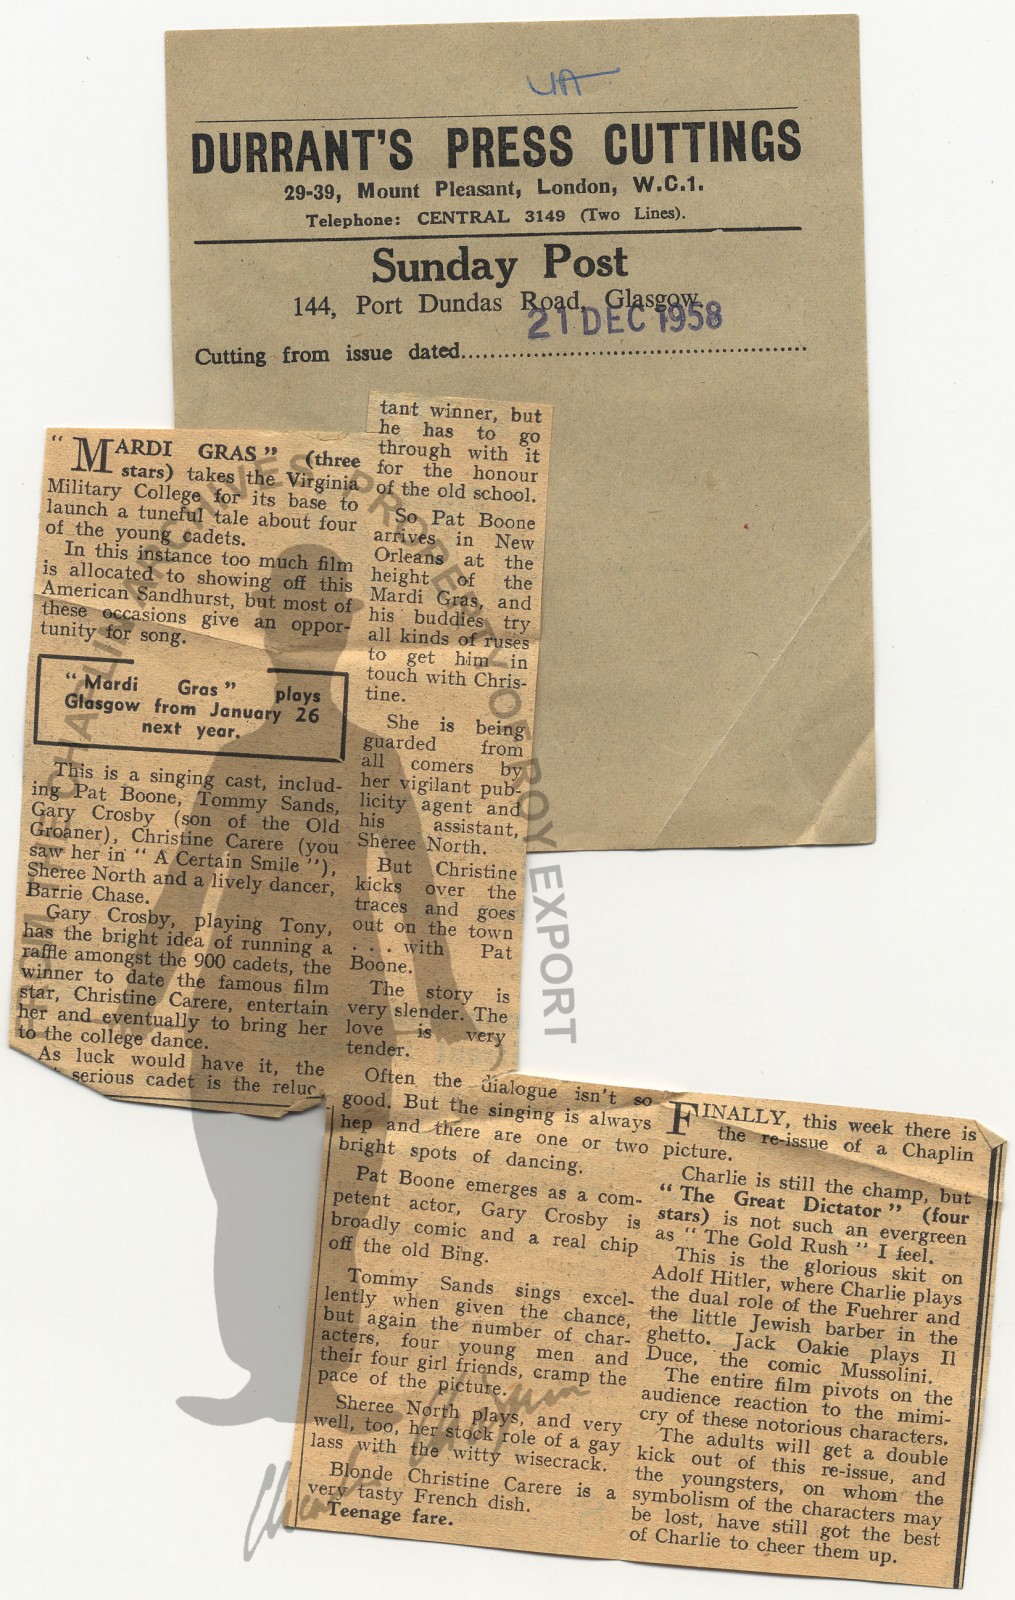 UA
DURRANT'S PRESS CUTTINGS
29-39, Mount Pleasant, London, W.C.1.
Telephone: CENTRAL 3149 (Two Lines).
Sunday Post
144, Port Dundas Road, Glasgow.
21 DEC 1958
Cutting from issue dated
"MARDI GRAS" (three
stars) takes the Virginia
Military College for its base to
launch a tuneful tale about four
of the young cadets.
In this instance too much film
is allocated to showing off this
American Sandhurst, but most of
these occasions give an oppor-
tunity for song.
"Mardi Gras" plays
Glasgow from January 26
next year.
This is a singing cast, includ-
ing Pat Boone, Tommy Sands,
Gary Crosby (son of the Old
Groaner), Christine Carere (you
saw her in "A Certain Smile"),
Sheree North and a lively dancer,
Barrie Chase.
Gary Crosby, playing Tony,
has the bright idea of running a
raffle amongst the 900 cadets, the
winner to date the famous film
star, Christine Carere, entertain
her and eventually to bring her
to the college dance.
As luck would have it, the
serious cadet is the reluc-
tant winner, but
he has to go
through with it
for the honour
of the old school.
So Pat Boone
arrives in New
Orleans at the
height of the
Mardi Gras, and
his buddies try
all kinds of ruses
to get him in
touch with Chris-
tine.
She is being
guarded from
all comers by
her vigilant pub-
licity agent and
his assistant,
Sheree North.
But Christine
kicks over the
traces and goes
out on the town
. . . with Pat
Boone.
The story is
very slender. The
love is very
tender.
Often the dialogue isn't so
good. But the singing is always
hep and there are one or two
bright spots of dancing.
Pat Boone emerges as a com-
petent actor, Gary Crosby is
broadly comic and a real chip
off the old Bing.
Tommy Sands sings excel-
lently when given the chance,
but again the number of char-
acters, four young men and
their four girl friends, cramp the
pace of the picture.
Sheree North plays, and very
well, too, her stock role of a gay
lass with the witty wisecrack.
Blonde Christine Carere is a
very tasty French dish.
Teenage fare.
FINALLY, this week there is
the re-issue of a Chaplin
picture.
Charlie is still the champ, but
"The Great Dictator" (four
stars) is not such an evergreen
as "The Gold Rush" I feel.
This is the glorious skit on
Adolf Hitler, where Charlie plays
the dual role of the Fuehrer and
the little Jewish barber in the
ghetto. Jack Oakie plays Il
Duce, the comic Mussolini.
The entire film pivots on the
audience reaction to the mimi-
cry of these notorious characters.
The adults will get a double
kick out of this re-issue, and
the youngsters, on whom the
symbolism of the characters may
be lost, have still got the best
of Charlie to cheer them up.
FROM THE CHAPLIN ARCHIVES PROPERTY OF ROY EXPORT
Charlie Chaplin